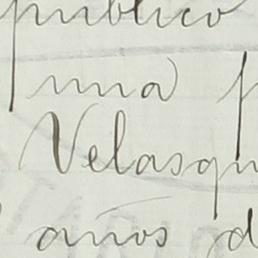 publico
una p
Velasqu
años d